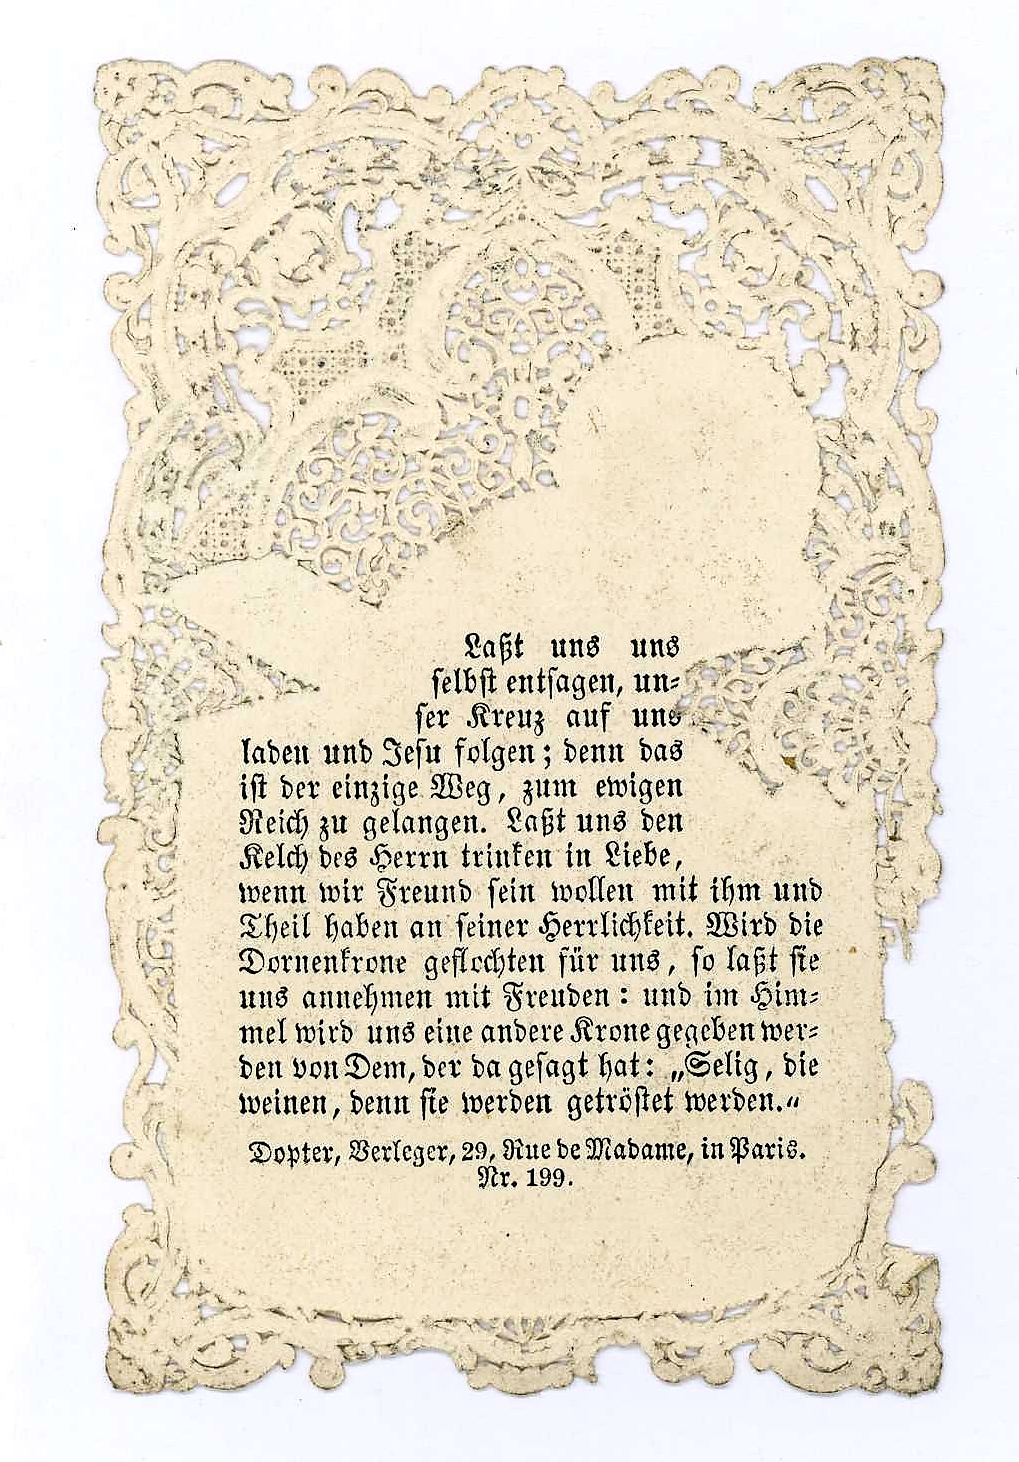 Laßt uns uns
selbst entsagen, un-
ser Kreuz auf uns
laden und Jesu folgen; denn das
ist der einzige Weg, zum ewigen
Reich zu gelangen. Laßt uns den
Kelch des Herrn trinken in Liebe,
wenn wir Freund sein wollen mit ihm und
Theil haben an seiner Herrlichkeit. Wird die
Dornenkrone geflochten für uns, so laßt sie
uns annehmen mit Freuden: und im Him-
mel wird uns eine andere Krone gegeben wer-
den von Dem, der da gesagt hat: „Selig, die
weinen, denn sie werden getröstet werden.“
Dopter, Verleger, 29, Rue de Madame, in Paris.
Nr. 199.